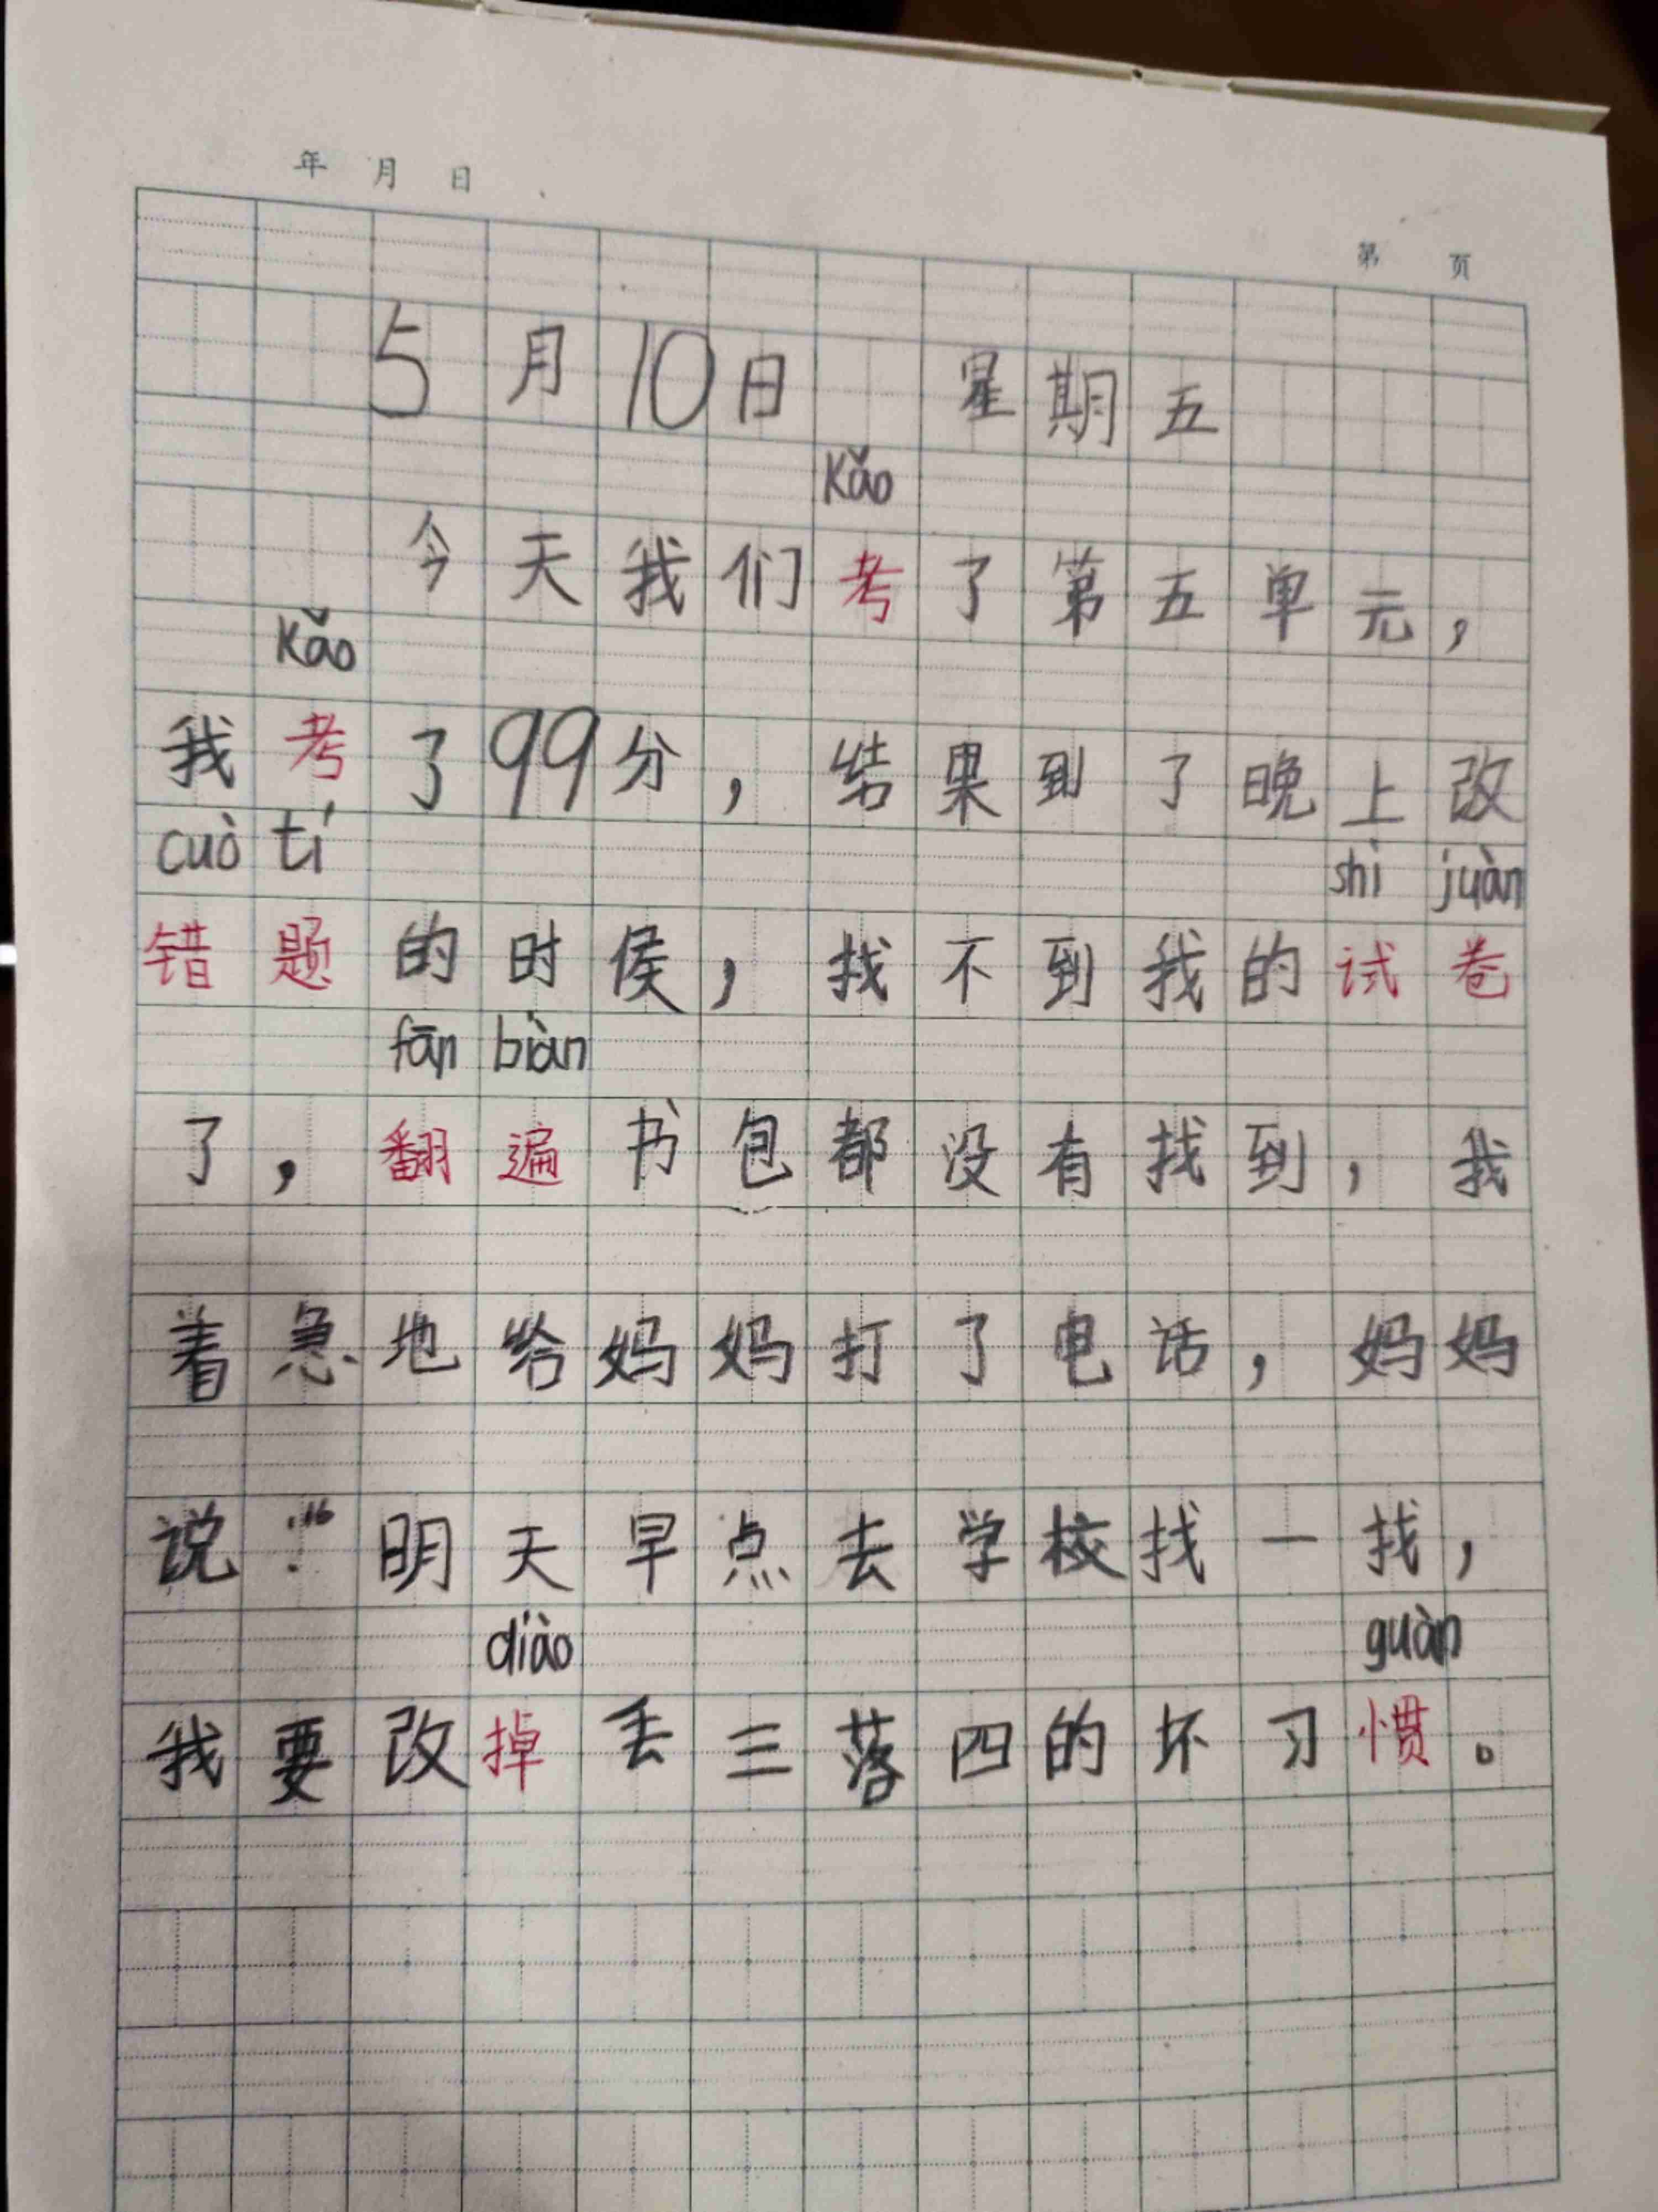 年 月 日
第 页
5月10日 星期五
kǎo
今天我们考了第五单元，
kǎo
我考了99分，结果到了晚上改
cuò tí shì juàn
错题的时侯，找不到我的试卷
fān biàn
了，翻遍书包都没有找到，我
着急地给妈妈打了电话，妈妈
说：“明天早点去学校找一找，
diào guàn
我要改掉丢三落四的坏习惯。